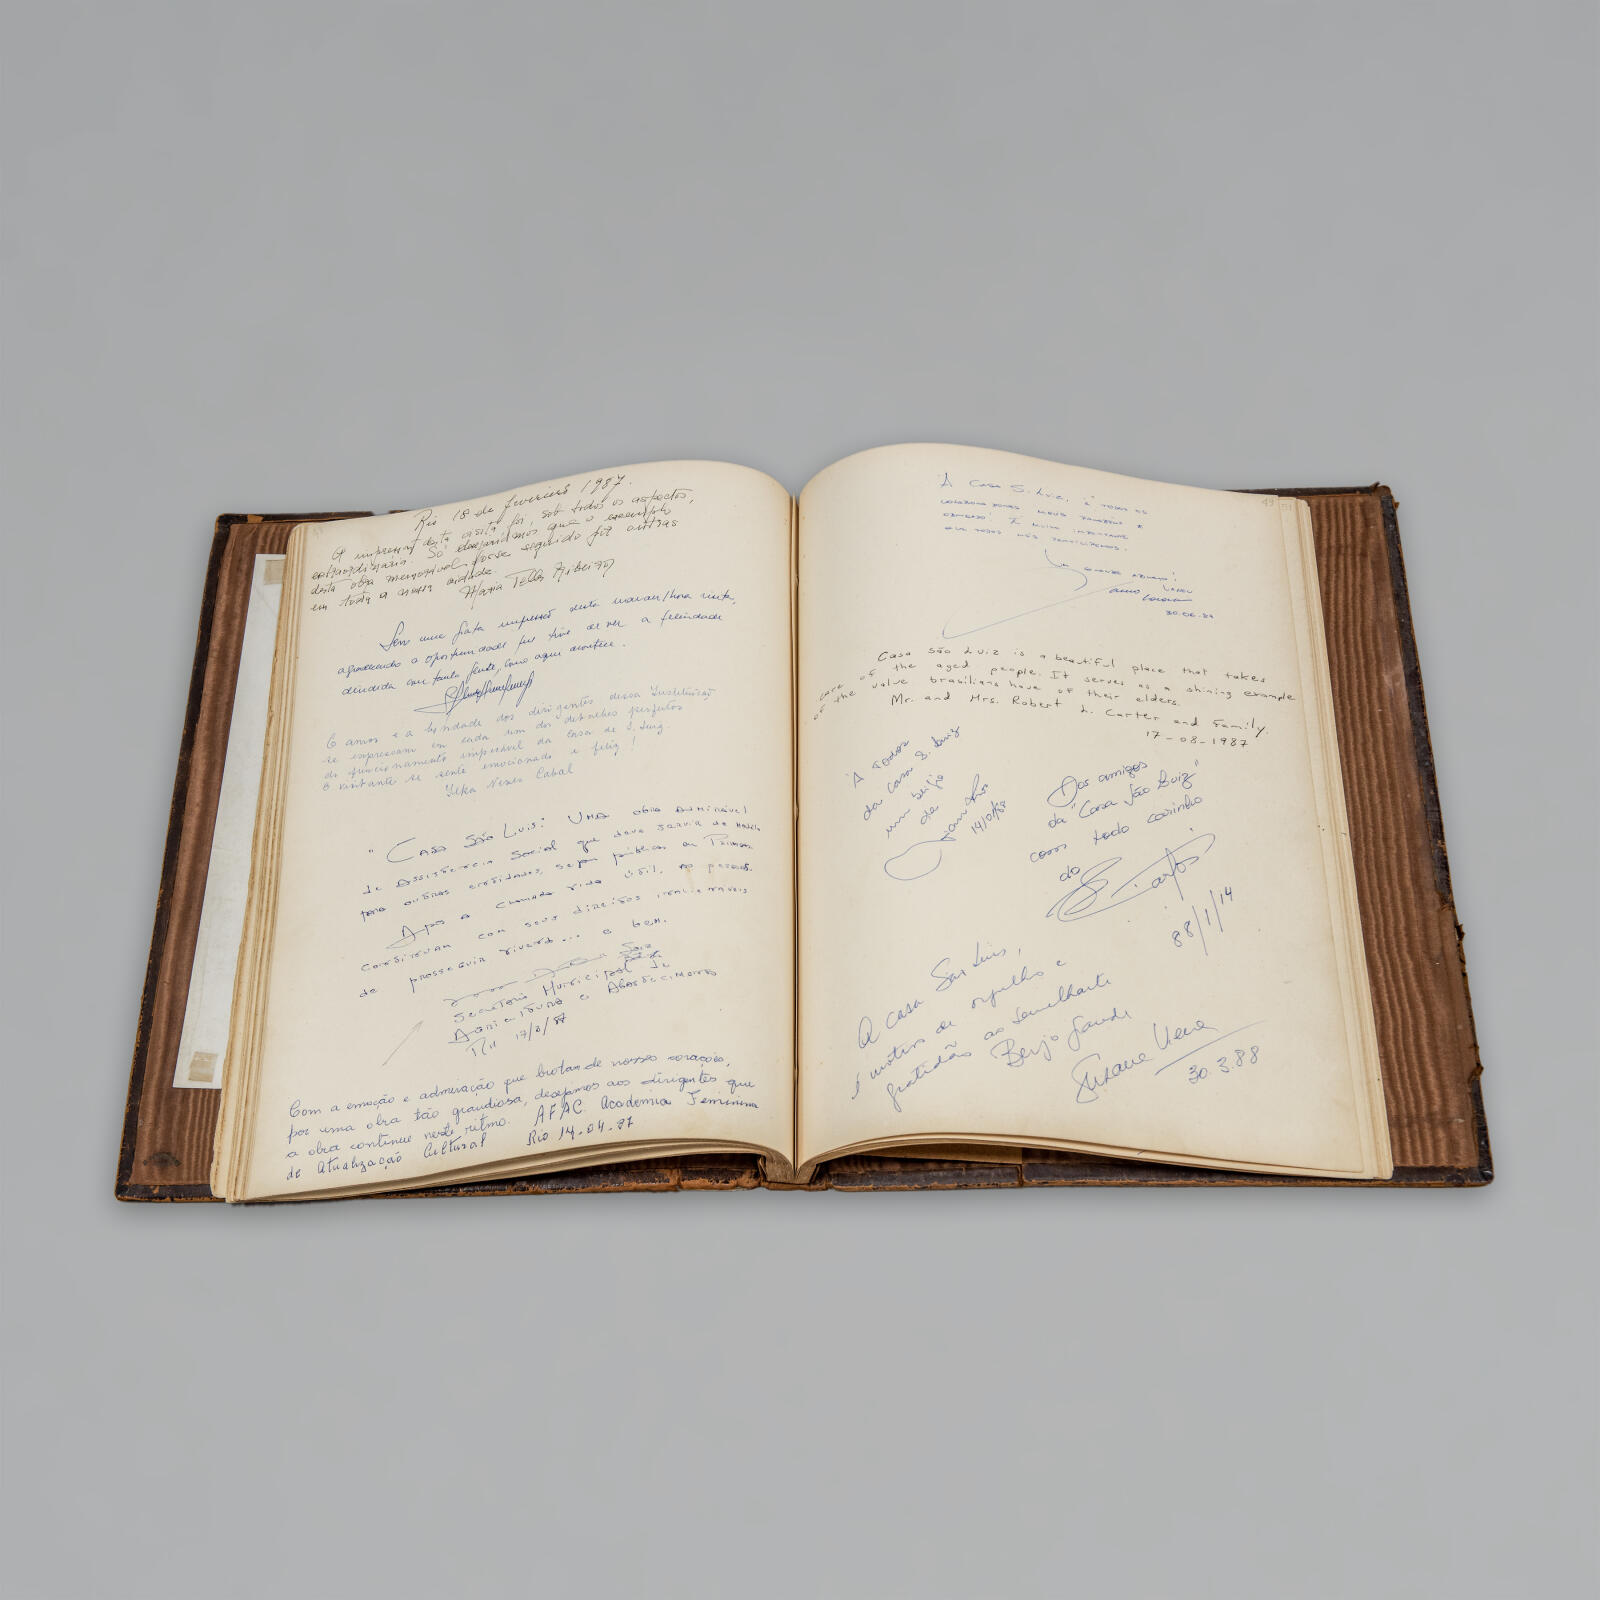 Rio 18 de fevereiro 1987.
A impressão desta visita foi, sob todos os aspectos,
extraordinária. Só desejaríamos que o exemplo
desta obra memorável fosse seguido por outras
em toda a nossa cidade.
Maria Telles Ribeiro
Levo uma grata impressão desta maravilhosa visita,
agradecendo a oportunidade que tive de ver a felicidade
devida com tanta gente, como aqui acontece.
O amor e a bondade dos dirigentes dessa Instituição
se expressam em cada um dos detalhes perfeitos
do funcionamento impecável da Casa de S. Luiz.
O visitante se sente emocionado e feliz!
Ilka Neves Cabal
"Casa São Luis: Uma obra admirável
de Assistência Social que deve servir de modelo
para outras entidades, sejam públicas ou Privadas.
Após a chamada vida útil, as pessoas
continuam com seus direitos inalienáveis
de prosseguir vivendo... e bem.
Secretario Municipal de
Agricultura e Abastecimento
Rio 17/3/87
Com a emoção e admiração que brotam de nossos corações,
por uma obra tão grandiosa, desejamos aos dirigentes que
a obra continue neste ritmo. AFAC. Academia Feminina
de Atualização Cultural Rio 14-04-87
49
À Casa S. Luiz, e todos os
meus parabéns e
obrigado! É muito importante
que todos nós
30.06.87
Casa são Luiz is a beautiful place that takes
care of the aged people. It serves as a shining example
of the value brasilians have of their elders.
Mr. and Mrs. Robert L. Carter and Family.
17-08-1987
A todos
da casa S. Luiz
um beijo
de
14/01/88
Aos amigos
da "Casa São Luiz"
com todo carinho
do
88/1/14
A casa São Luis,
é motivo de orgulho e
gratidão ao semelhante
Beijo Grande
Susana Vieira
30.3.88